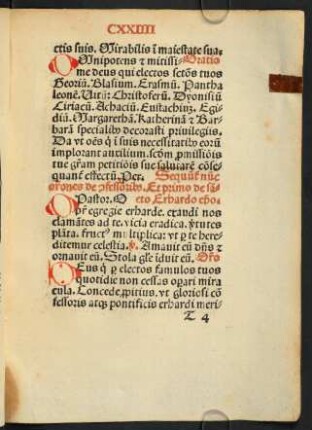 CXXIIII
ctis suis. Mirabilis ī maiestate sua.
Omnipotens & mitissi- Oratio
me deus qui electos sctōs tuos
Georiū. Blasium. Erasmū. Pantha
leonē. Vitū: Christoferū. Dyonisiū
Ciriacū. Achaciū. Eustachiū. Egi-
diū. Margarethā. Katherinā & Bar-
barā specialib⁹ decorasti priuilegijs.
Da vt oēs q̄ i suis necessitatib⁹ eorū
implorant auxilium. scdm p̄missiōis
tue grām petitiōis sue salutarē cōse-
quant᷑ effectū. Per. Sequūt᷑ nūc
orōnes de p̄fessorib⁹. Et primo de sā-
O Pastor. O cto Erhardo epo.
p̄r egregie erharde. exaudi nos
clamātes ad te. vicia eradica. v̄tutes
plāta. fruct⁹ multiplica: vt p te here-
ditemur celestia. ℣. Amauit eū dn̄s &
ornauit eū. Stola gl̄e iduit eū. Orō
Deus q̄ p electos famulos tuos
quotidie non cessas opari mira
cula. Concede ppitius. vt gloriosi cō
fessoris atq; pontificis erhardi meri-
T 4